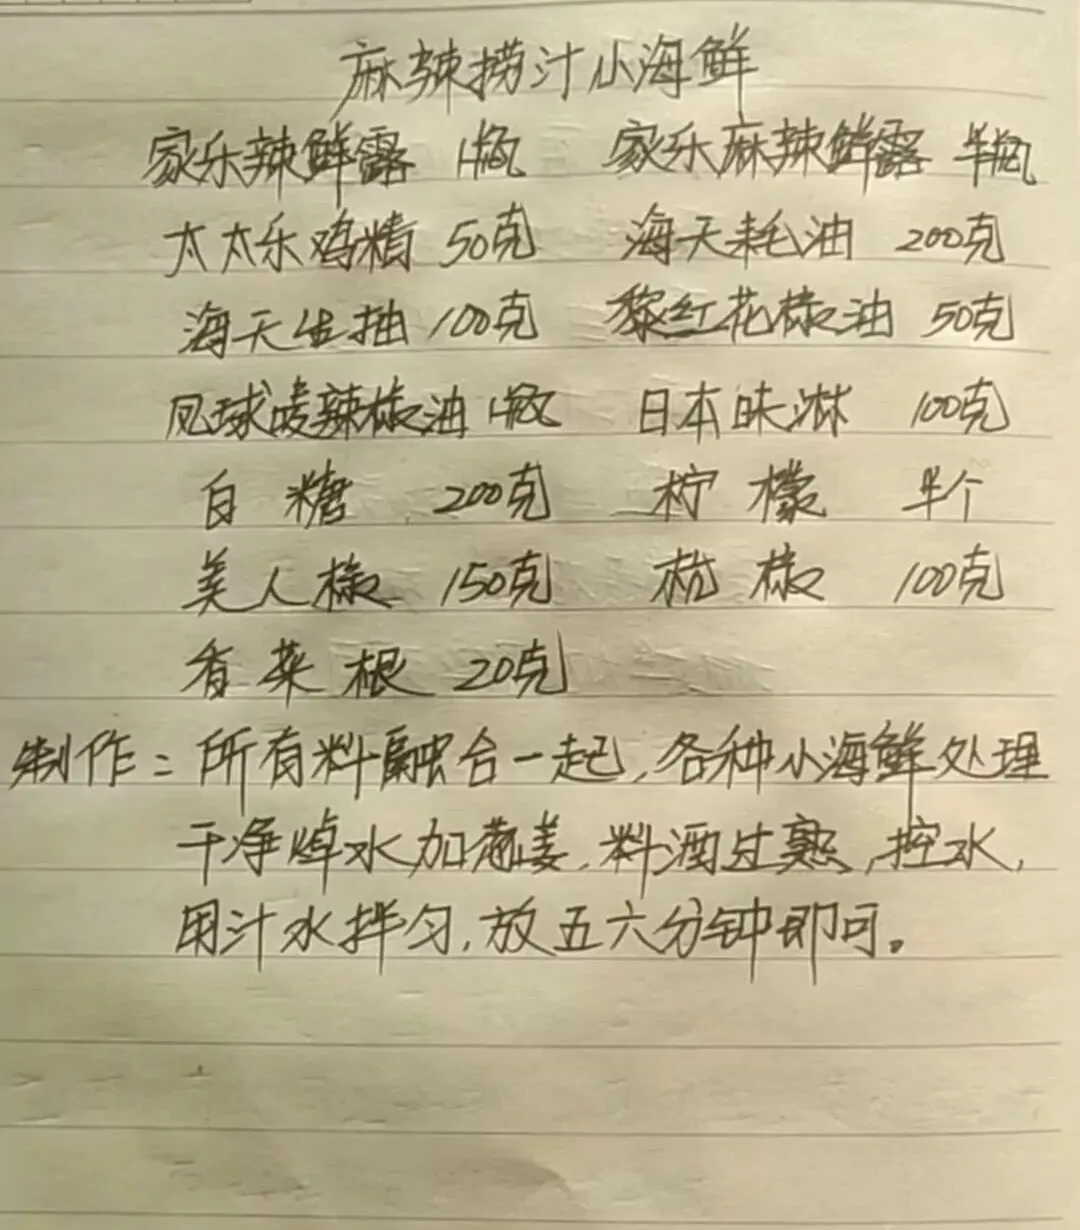 麻辣捞汁小海鲜
家乐辣鲜露 1瓶 家乐麻辣鲜露 半瓶
太太乐鸡精 50克 海天耗油 200克
海天生抽 100克 黎红花椒油 50克
凤球唛辣椒油 1瓶 日本味淋 100克
白糖 200克 柠檬 半个
美人椒 150克 杭椒 100克
香菜根 20克
制作：所有料融合一起，各种小海鲜处理
干净焯水加葱姜，料酒过熟，控水，
用汁水拌匀，放五六分钟即可。